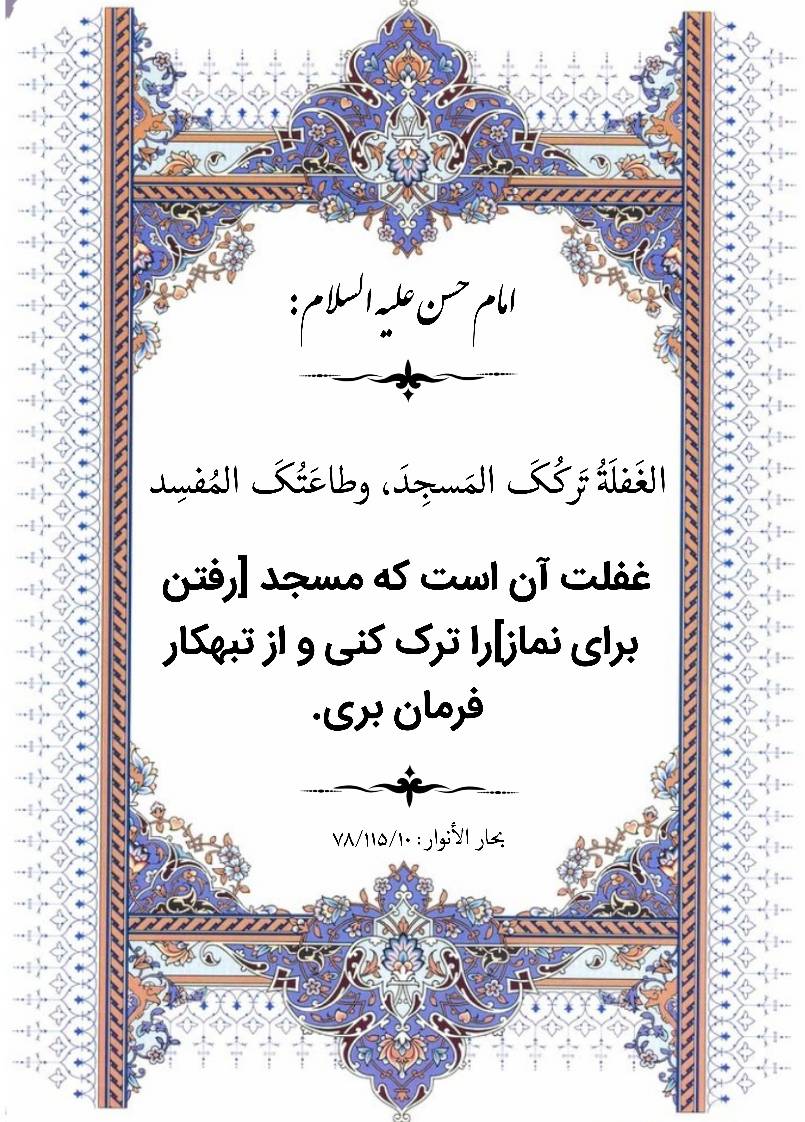 امام حسن علیه السلام:
الغَفلَةُ تَركُكَ المَسجِدَ، وطاعَتُكَ المُفسِد
غفلت آن است که مسجد [رفتن
برای نماز]را ترک کنی و از تبهکار
فرمان بری.
بحار الأنوار: ۷۸/۱۱۵/۱۰